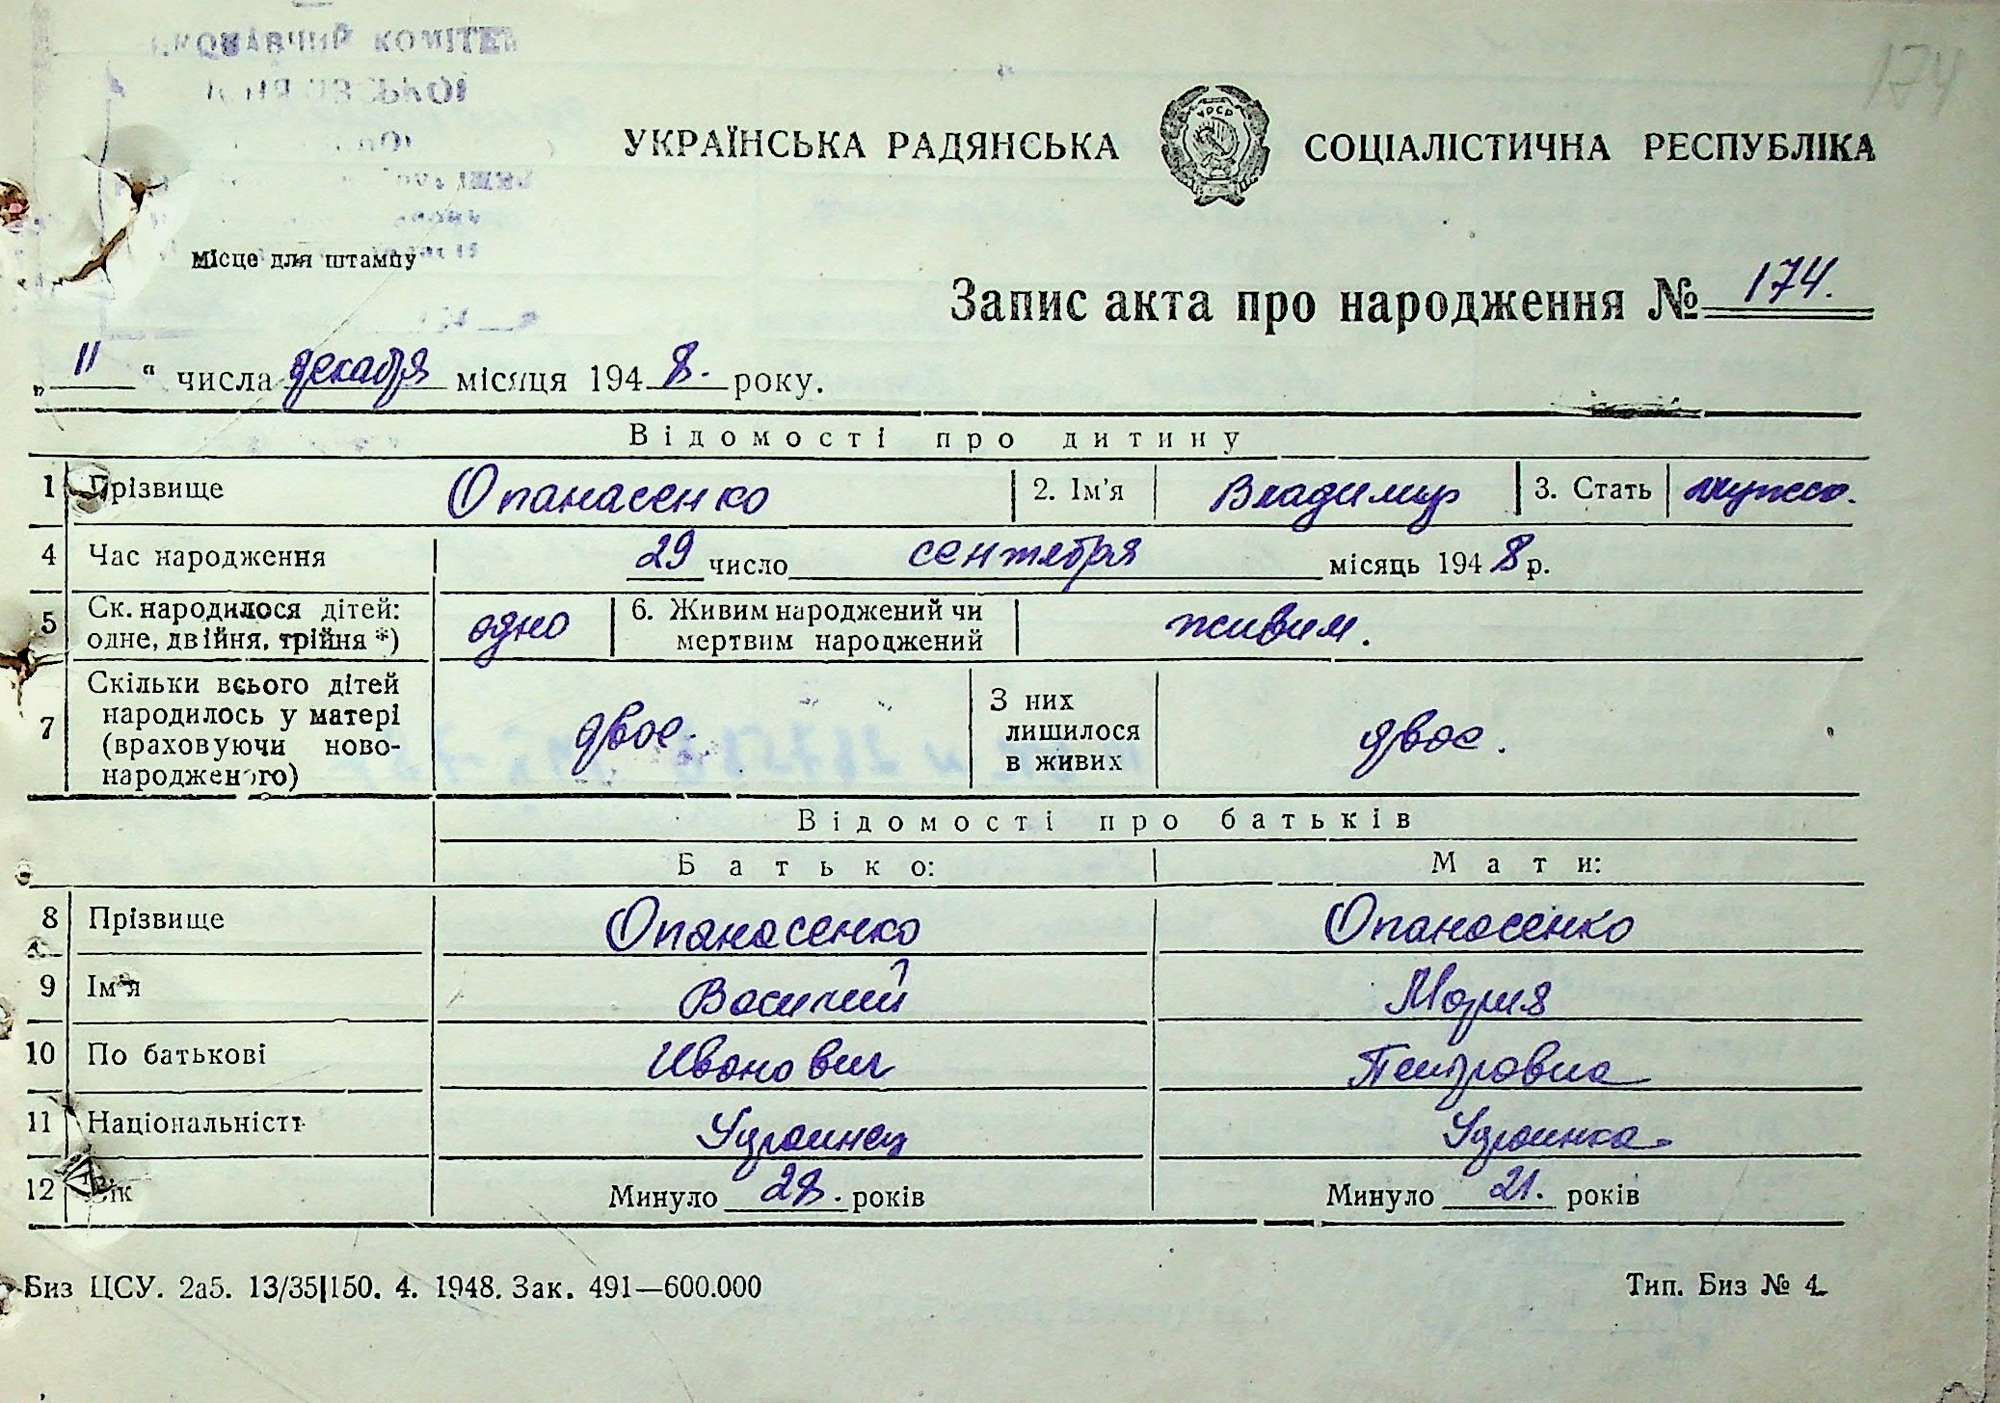 КОМІТЕТ
174
УКРАЇНСЬКА РАДЯНСЬКА СОЦІАЛІСТИЧНА РЕСПУБЛІКА
УРСР
Місце для штампу
Запис акта про народження № 174.
„ 11 “ числа декабря місяця 1948. року.
Відомості про дитину
1 Прізвище Опанасенко 2. Ім'я Владимир 3. Стать мужск.
4 Час народження 29 число сентября місяць 1948 р.
5 Ск. народилося дітей: одно 6. Живим народжений чи живим.
одне, двійня, трійня *) мертвим народжений
7 Скільки всього дітей двое. З них двое.
народилось у матері лишилося
(враховуючи ново- в живих
народженого)
Відомості про батьків
Батько: Мати:
8 Прізвище Опанасенко Опанасенко
9 Ім'я Василий Мария
10 По батькові Иванович Петровна
11 Національність Украинец Украинка
12 Вік Минуло 28. років Минуло 21. років
Биз ЦСУ. 2а5. 13/35|150. 4. 1948. Зак. 491—600.000 Тип. Биз № 4